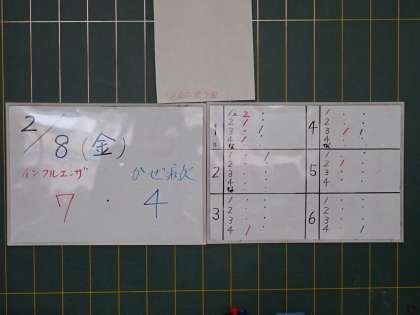 2/8 (金)
インフルエンザ
かぜ・病欠
7 ・ 4
1
1 2 ・
2 1 ・
3 ・ 1
4 1 ・
2
1 ・ 1
2 ・ ・
3 ・ ・
4 ・ ・
3
1 ・ ・
2 ・ ・
3 ・ ・
4 1 ・
4
1 ・ ・
2 ・ ・
3 1 1
4 ・ ・
5
1 ・ ・
2 1 ・
3 ・ ・
4 ・ ・
6
1 ・ ・
2 ・ ・
3 ・ ・
4 ・ 1